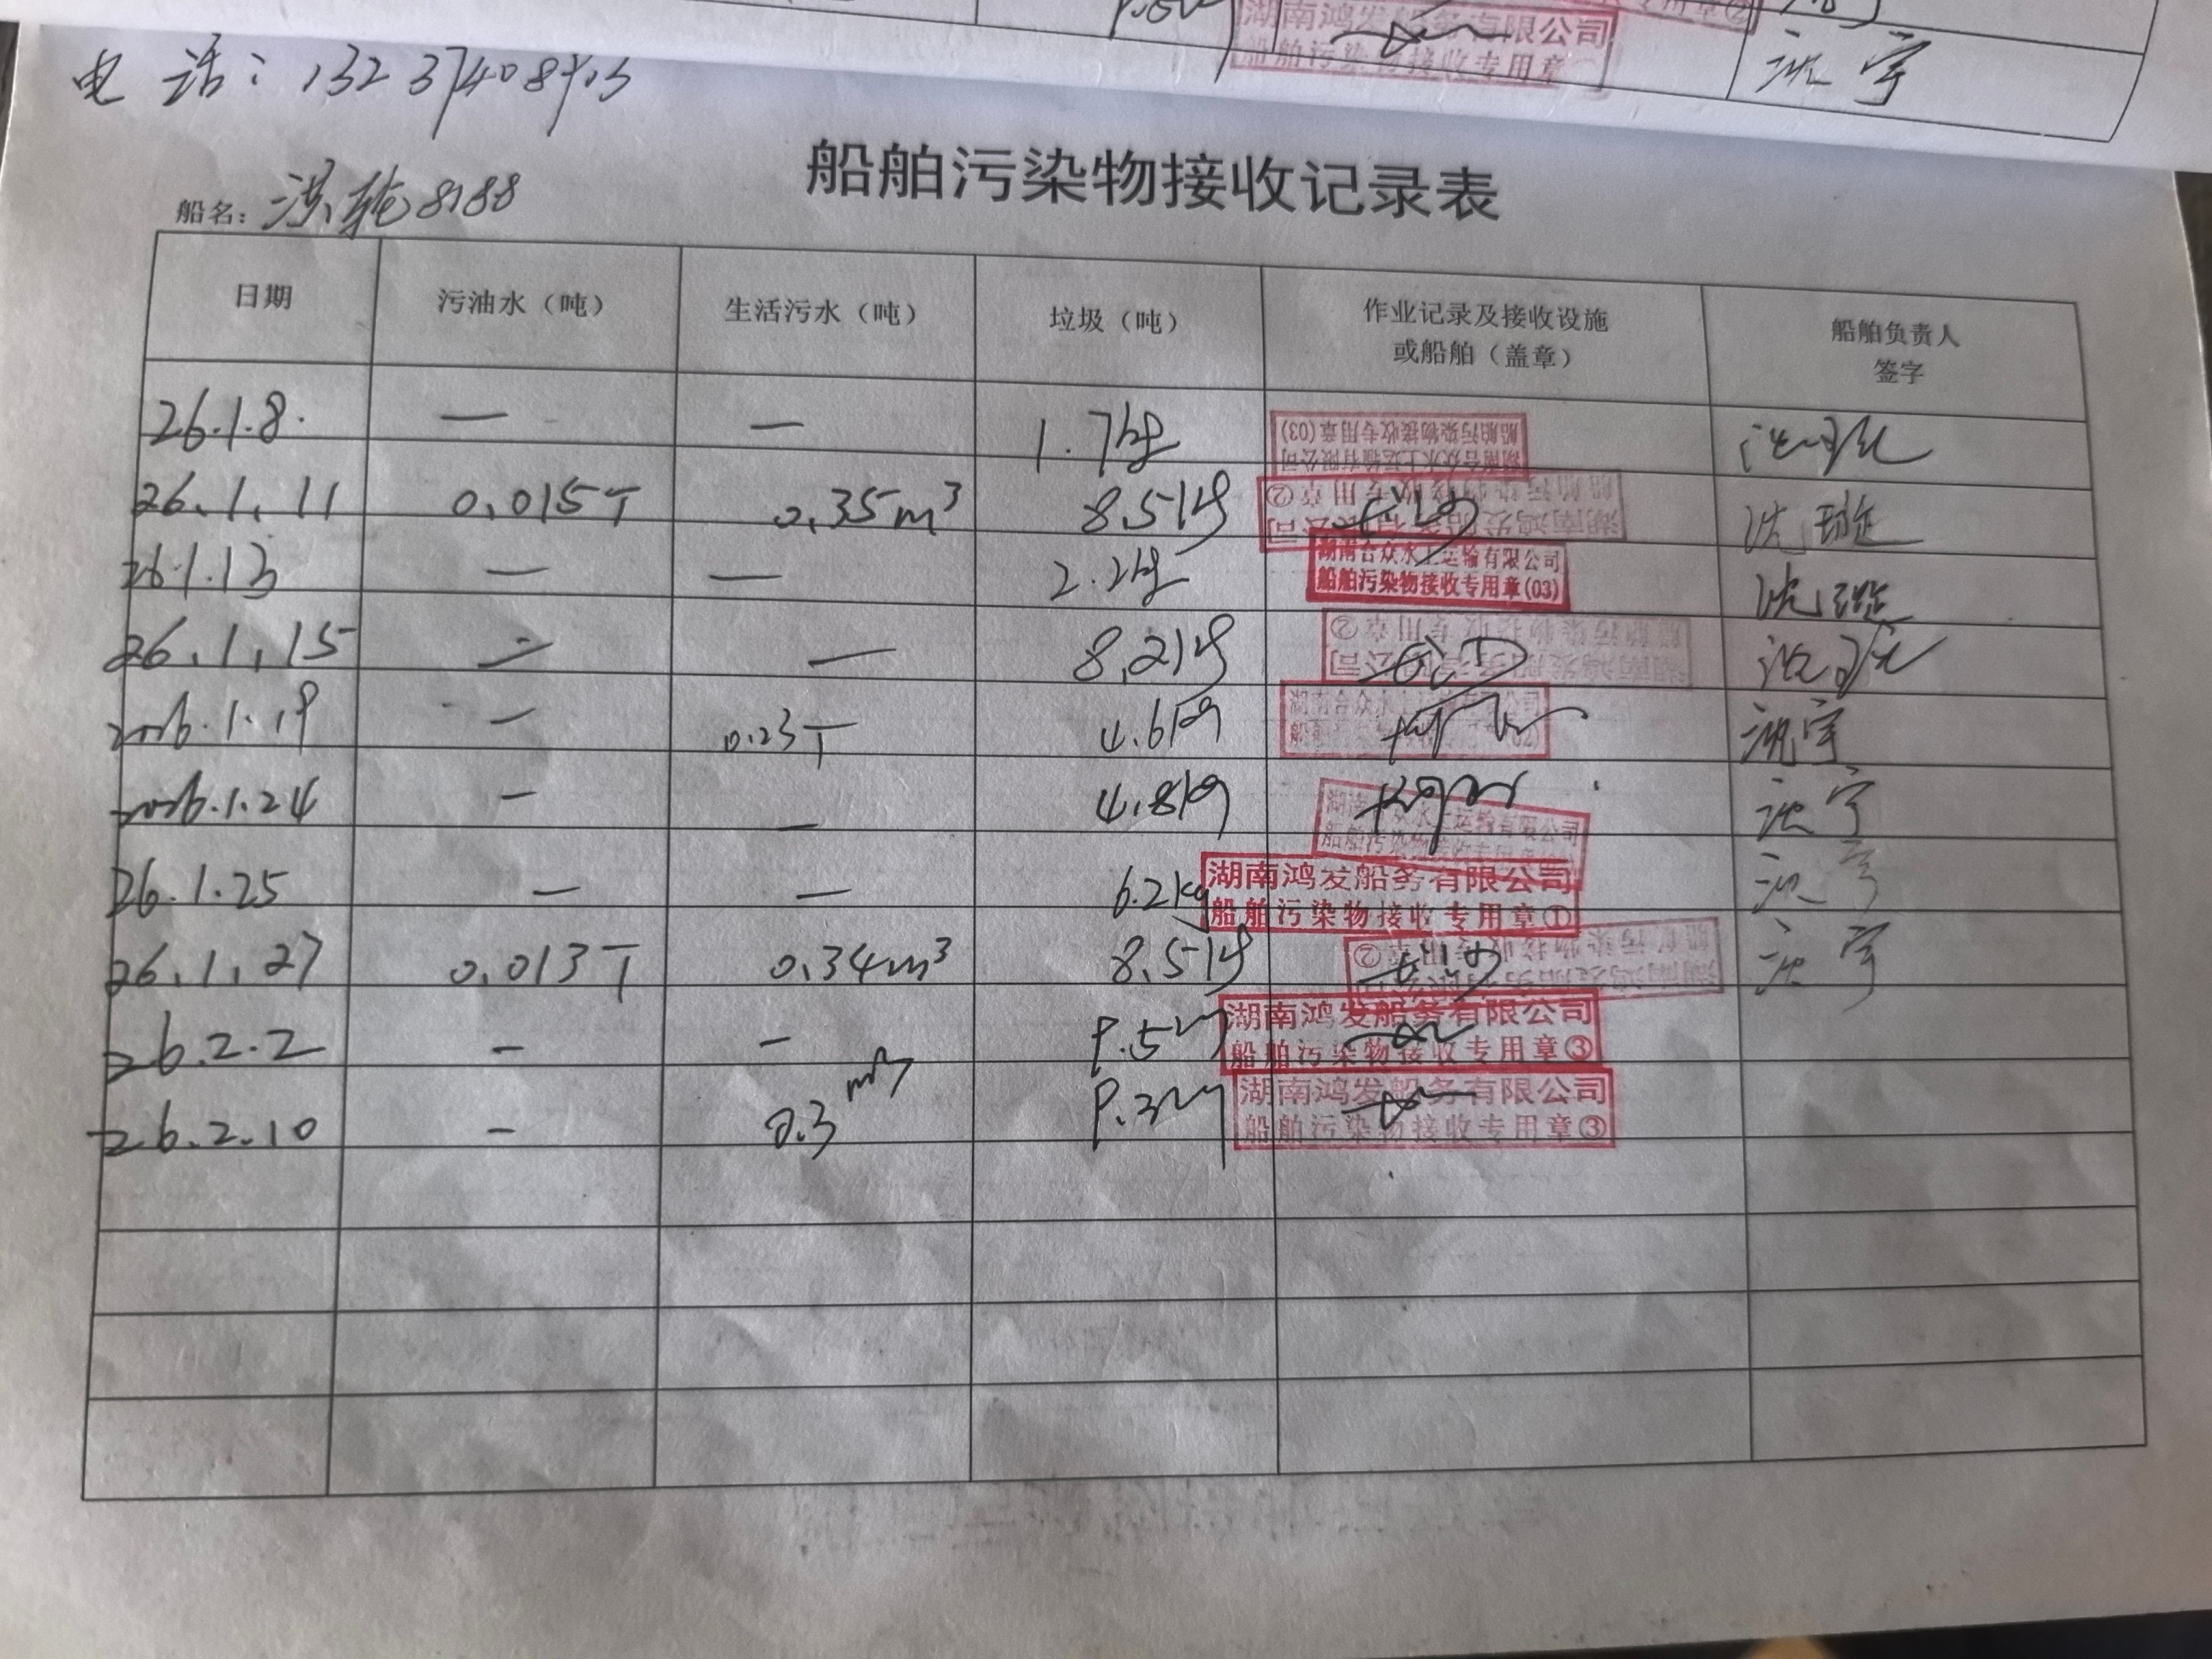 湖南鸿发船务有限公司
船舶污染物接收专用章
沈宇
电话：
船舶污染物接收记录表
船名：洪轮8188
日期 污油水（吨） 生活污水（吨） 垃圾（吨） 作业记录及接收设施或船舶（盖章） 船舶负责人签字
26.1.8. — — 1.7kg 湖南合众水上运输有限公司 船舶污染物接收专用章(03)
26.1.11 0.015T 0.35m³ 8.5kg 湖南鸿发船务有限公司 船舶污染物接收专用章② 沈琎
26.1.13 — — 2.2kg 湖南合众水上运输有限公司 船舶污染物接收专用章(03) 沈琎
26.1.15 — — 8.2kg 湖南鸿发船务有限公司 船舶污染物接收专用章②
2026.1.19 — 0.23T 4.6kg 湖南合众水上运输有限公司 沈宇
2026.1.24 — — 4.8kg 湖南合众水上运输有限公司 船舶污染物接收专用章 沈宇
26.1.25 — — 6.2kg 湖南鸿发船务有限公司 船舶污染物接收专用章① 沈宇
26.1.27 0.013T 0.34m³ 8.5kg 湖南鸿发船务有限公司 船舶污染物接收专用章② 沈宇
26.2.2 — — 9.5kg 湖南鸿发船务有限公司 船舶污染物接收专用章③
26.2.10 — 0.3m³ 9.3kg 湖南鸿发船务有限公司 船舶污染物接收专用章③